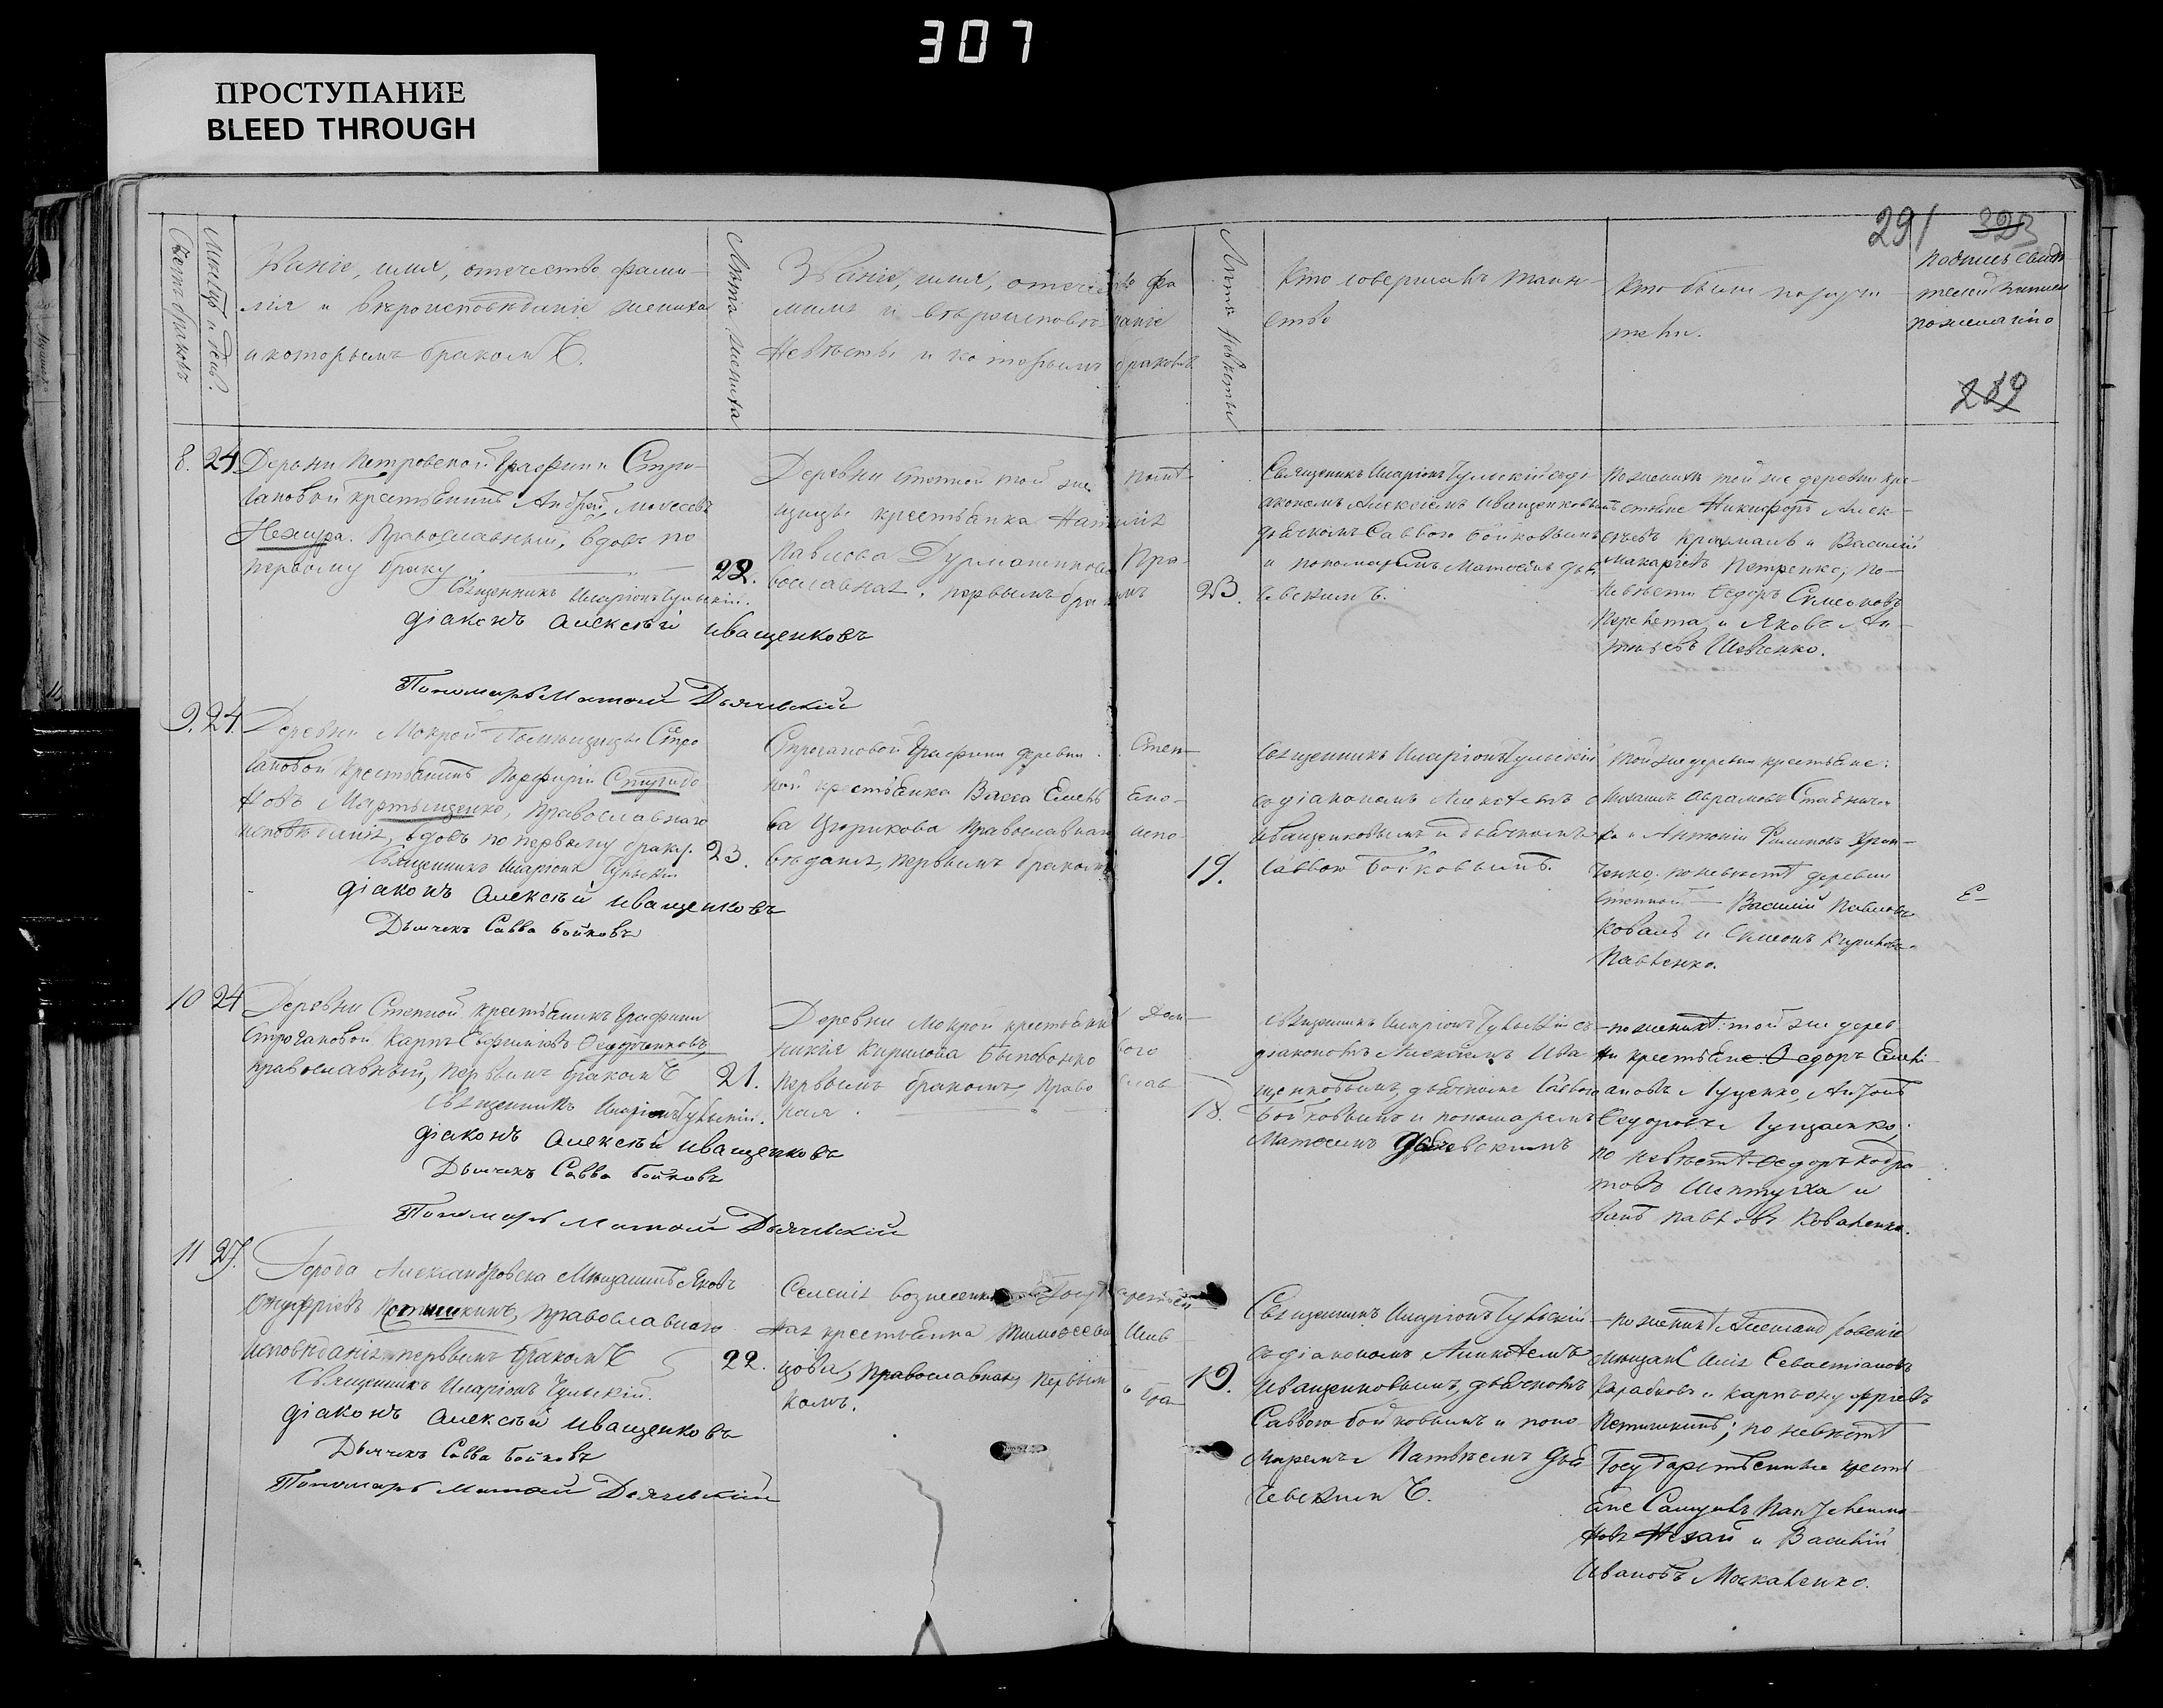 307
ПРОСТУПАНИЕ
BLEED THROUGH
291 323
289
Счетъ браковъ
Мѣсяцъ и день.
Званіе, имя, отечество, фами-
лія и вѣроисповѣданіе жениха
и которымъ бракомъ.
Лѣта жениха
Званіе, имя, отечество фа
милія и вѣроисповѣданіе
невѣсты и которымъ бракомъ
Лѣта невѣсты
Кто совершалъ таин-
ство
Кто были поручи-
тели.
подпись свидѣ
телей записи
по желанію
8. 24
Деревни Петровской Графини Стро-
гановой крестьянинъ Андрей Моисеевъ
Нехура. Православный, вдовъ по
первому браку
Священникъ Иларіонъ Тульскій.
діаконъ Алексѣй Иващенковъ
Пономарь Матѳей Дьячевскій
22.
Деревни Степной той же помѣ-
щицы крестьянка Наталія
Павлова Дурматенкова Пра-
вославная, первымъ бракомъ
23.
Священникъ Иларіонъ Тульскій съ ді
акономъ Алексѣемъ Иващенковымъ
дьячкомъ Саввою Бойковымъ
и пономаремъ Матѳеемъ Дья
чевскимъ.
по женихѣ той же деревни кре-
стьяне Никифоръ Алек-
сѣевъ и Василій
Макаріевъ Петренко; по
невѣстѣ Ѳедоръ Симеоновъ
и Яковъ Ан-
тиневъ Шевченко.
9. 24.
Деревни Мокрой Помѣщицы Стро
гановой крестьянинъ Порфирій Спиридо
новъ Мартыщенко, православнаго
исповѣданія, вдовъ по первому браку.
Священникъ Иларіонъ Тульскій
діаконъ Алексѣй Иващенковъ
Дьячекъ Савва Бойковъ
23.
Строгановой Графини деревни Степ-
ной крестьянка Васса Емель яно-
ва Цюрикова Православнаго испо-
вѣданія, первымъ бракомъ
19.
Священникъ Иларіонъ Тульскій
съ діакономъ Алексѣемъ
Иващенковымъ и дьячкомъ
Саввою Бойковымъ.
той же деревни крестьяне:
Михаилъ Аврамовъ Стадничен
ко и Антоній Филиповъ Хрин-
ченко; по невѣстѣ деревни
Степной Василій Павловъ
Коваль и Симеонъ Кириловъ
Павленко.
10 24
Деревни Степной крестьянинъ Графини
Строгановой Карпъ
православный, первымъ бракомъ
Священникъ Иларіонъ Тульскій.
діаконъ Алексѣй Иващенковъ
Дьячекъ Савва Бойковъ
Пономарь Матѳей Дьячевскій
21.
Деревни Мокрой крестьянка Дом-
никія Кирилова
первымъ бракомъ, право слав-
ная.
18.
Священникъ Иларіонъ Тульскій съ
діакономъ Алексѣемъ Ива
щенковымъ, дьячкомъ Саввою
Бойковымъ и пономаремъ
Матѳеемъ Дьячевскимъ
по женихѣ той же дерев
ни крестьяне Ѳедоръ Емелі
ановъ Луценко, Антонъ
Ѳедоровъ Луценко;
по невѣстѣ Ѳедоръ Кодра
товъ Шептуха и
Иванъ Павловъ Коваленко.
11 27.
Города Александровска Мѣщанинъ Яковъ
Онуфріевъ Петишкинъ, православнаго
исповѣданія, первымъ бракомъ
Священникъ Иларіонъ Тульскій.
діаконъ Алексѣй Иващенковъ
Дьячекъ Савва Бойковъ
Пономарь Матѳей Дьячевскій
22.
Селенія Вознесенки Государствен
ная крестьянка
цова, православная, первымъ бра-
комъ.
19.
Священникъ Иларіонъ Тульскій
съ діакономъ Алексѣемъ
Иващенковымъ, дьячкомъ
Саввою Бойковымъ и поно-
маремъ Матвѣемъ Дья
чевскимъ.
по женихѣ Александровскіе
мѣщане Илія Севастіановъ
Карабковъ и Карпъ Онуфріевъ
Петишкинъ; по невѣстѣ
Государственные кресть
яне Самуилъ
новъ Незай и Василій
Ивановъ Москаленко.